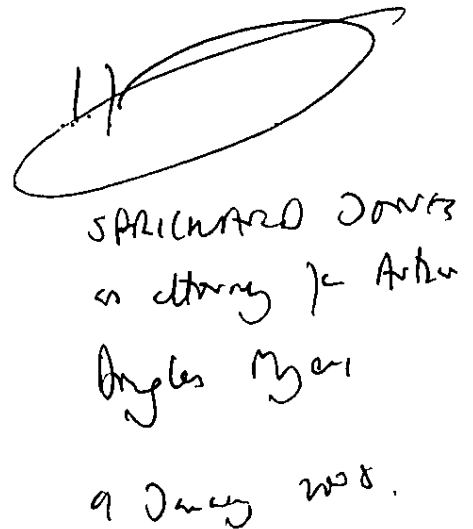 S PRICHARD JONES
as attorney for Arthur
Douglas Myers
9 January 2008.